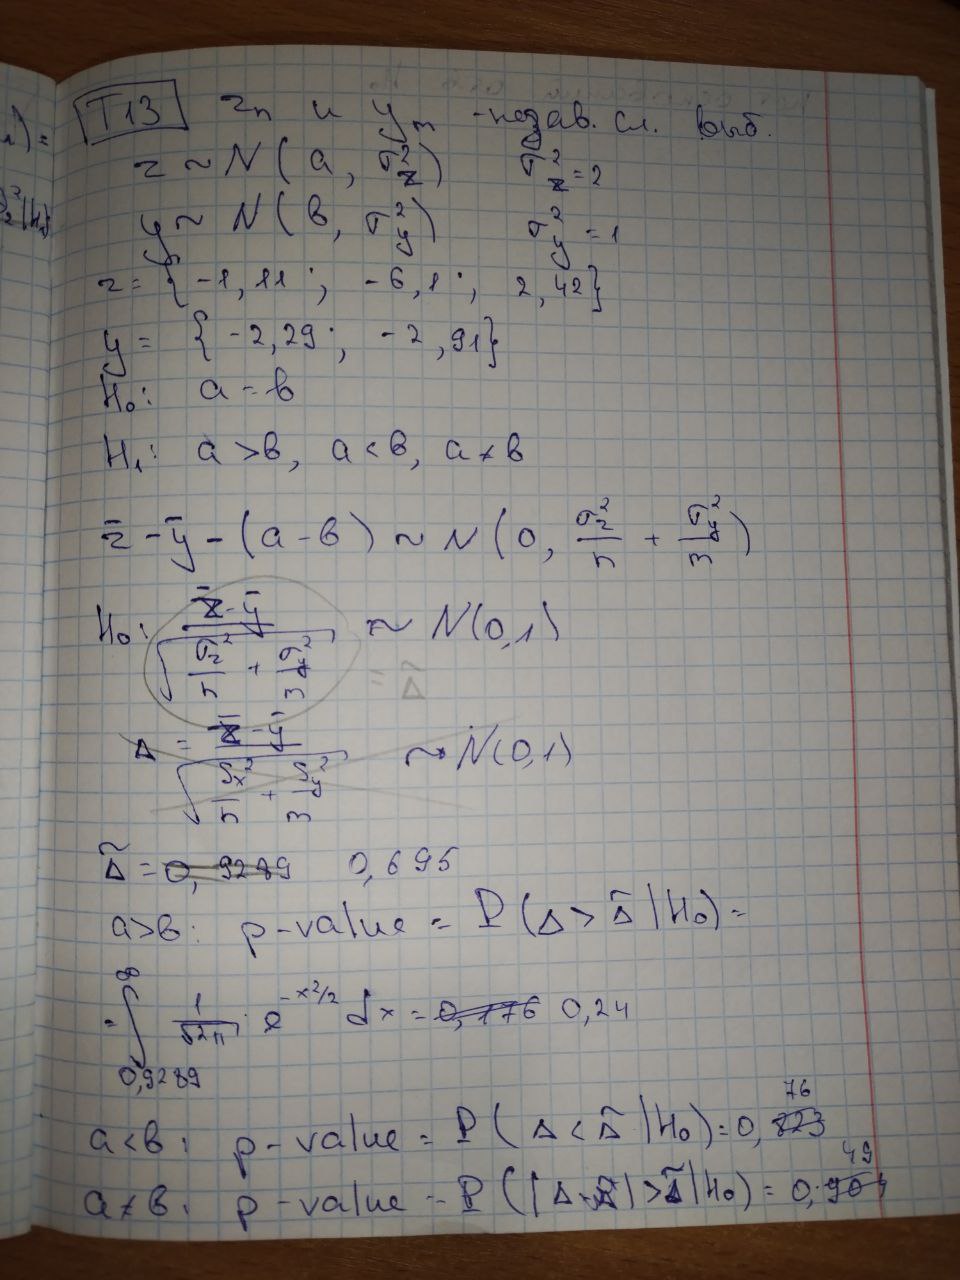 T13 z_n и y_m - незав. сл. выб.
z ~ N(a, σ_z^2) σ_z^2 = 2
y ~ N(b, σ_y^2) σ_y^2 = 1
z = {-1,11; -6,1; 2,42}
y = {-2,29; -2,91}
H_0: a = b
H_1: a > b, a < b, a ≠ b
z̄ - ȳ - (a - b) ~ N(0, σ_z^2/n + σ_y^2/m)
H_0: (z̄ - ȳ)/√(σ_z^2/n + σ_y^2/m) ~ N(0,1)
= Δ̃
Δ = (z̄ - ȳ)/√(S_x^2/n + S_y^2/m) ~ N(0,1)
Δ̃ = 0,9289 0,695
a > b: p-value = P(Δ > Δ̃ | H_0) =
= ∫_{0,9289}^{∞} 1/√2π · e^{-x^2/2} dx = 0,176 0,24
a < b: p-value = P(Δ < Δ̃ | H_0) = 0,823 76
a ≠ b: p-value = P(|Δ| > Δ̃ | H_0) = 0, 49